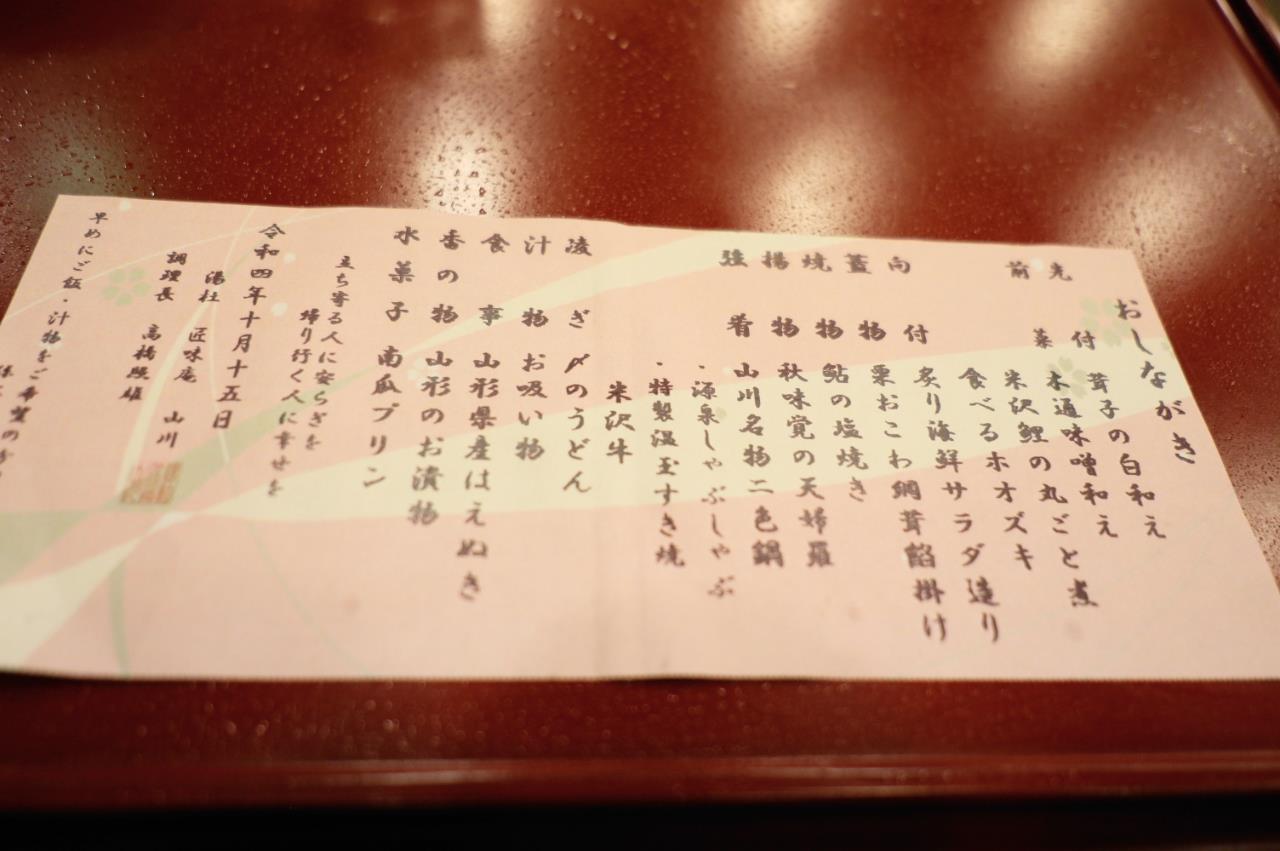 おしながき
先付 茸子の白和え
前菜 木通味噌和え
米沢鯉の丸ごと煮
食べるホオズキ
向付 炙り海鮮サラダ造り
蓋物 栗おこわ 網茸餡掛け
焼物 鮎の塩焼き
揚物 秋味覚の天婦羅
強肴 山川名物二色鍋
・源泉しゃぶしゃぶ
・特製温玉すき焼
米沢牛
凌ぎ 〆のうどん
汁物 お吸い物
食事 山形県産はえぬき
香の物 山形のお漬物
水菓子 南瓜プリン
立ち寄る人に安らぎを
帰り行く人に幸せを
令和四年十月十五日
湯杜 匠味庵 山川
調理長 高橋
早めにご飯・汁物をご希望の